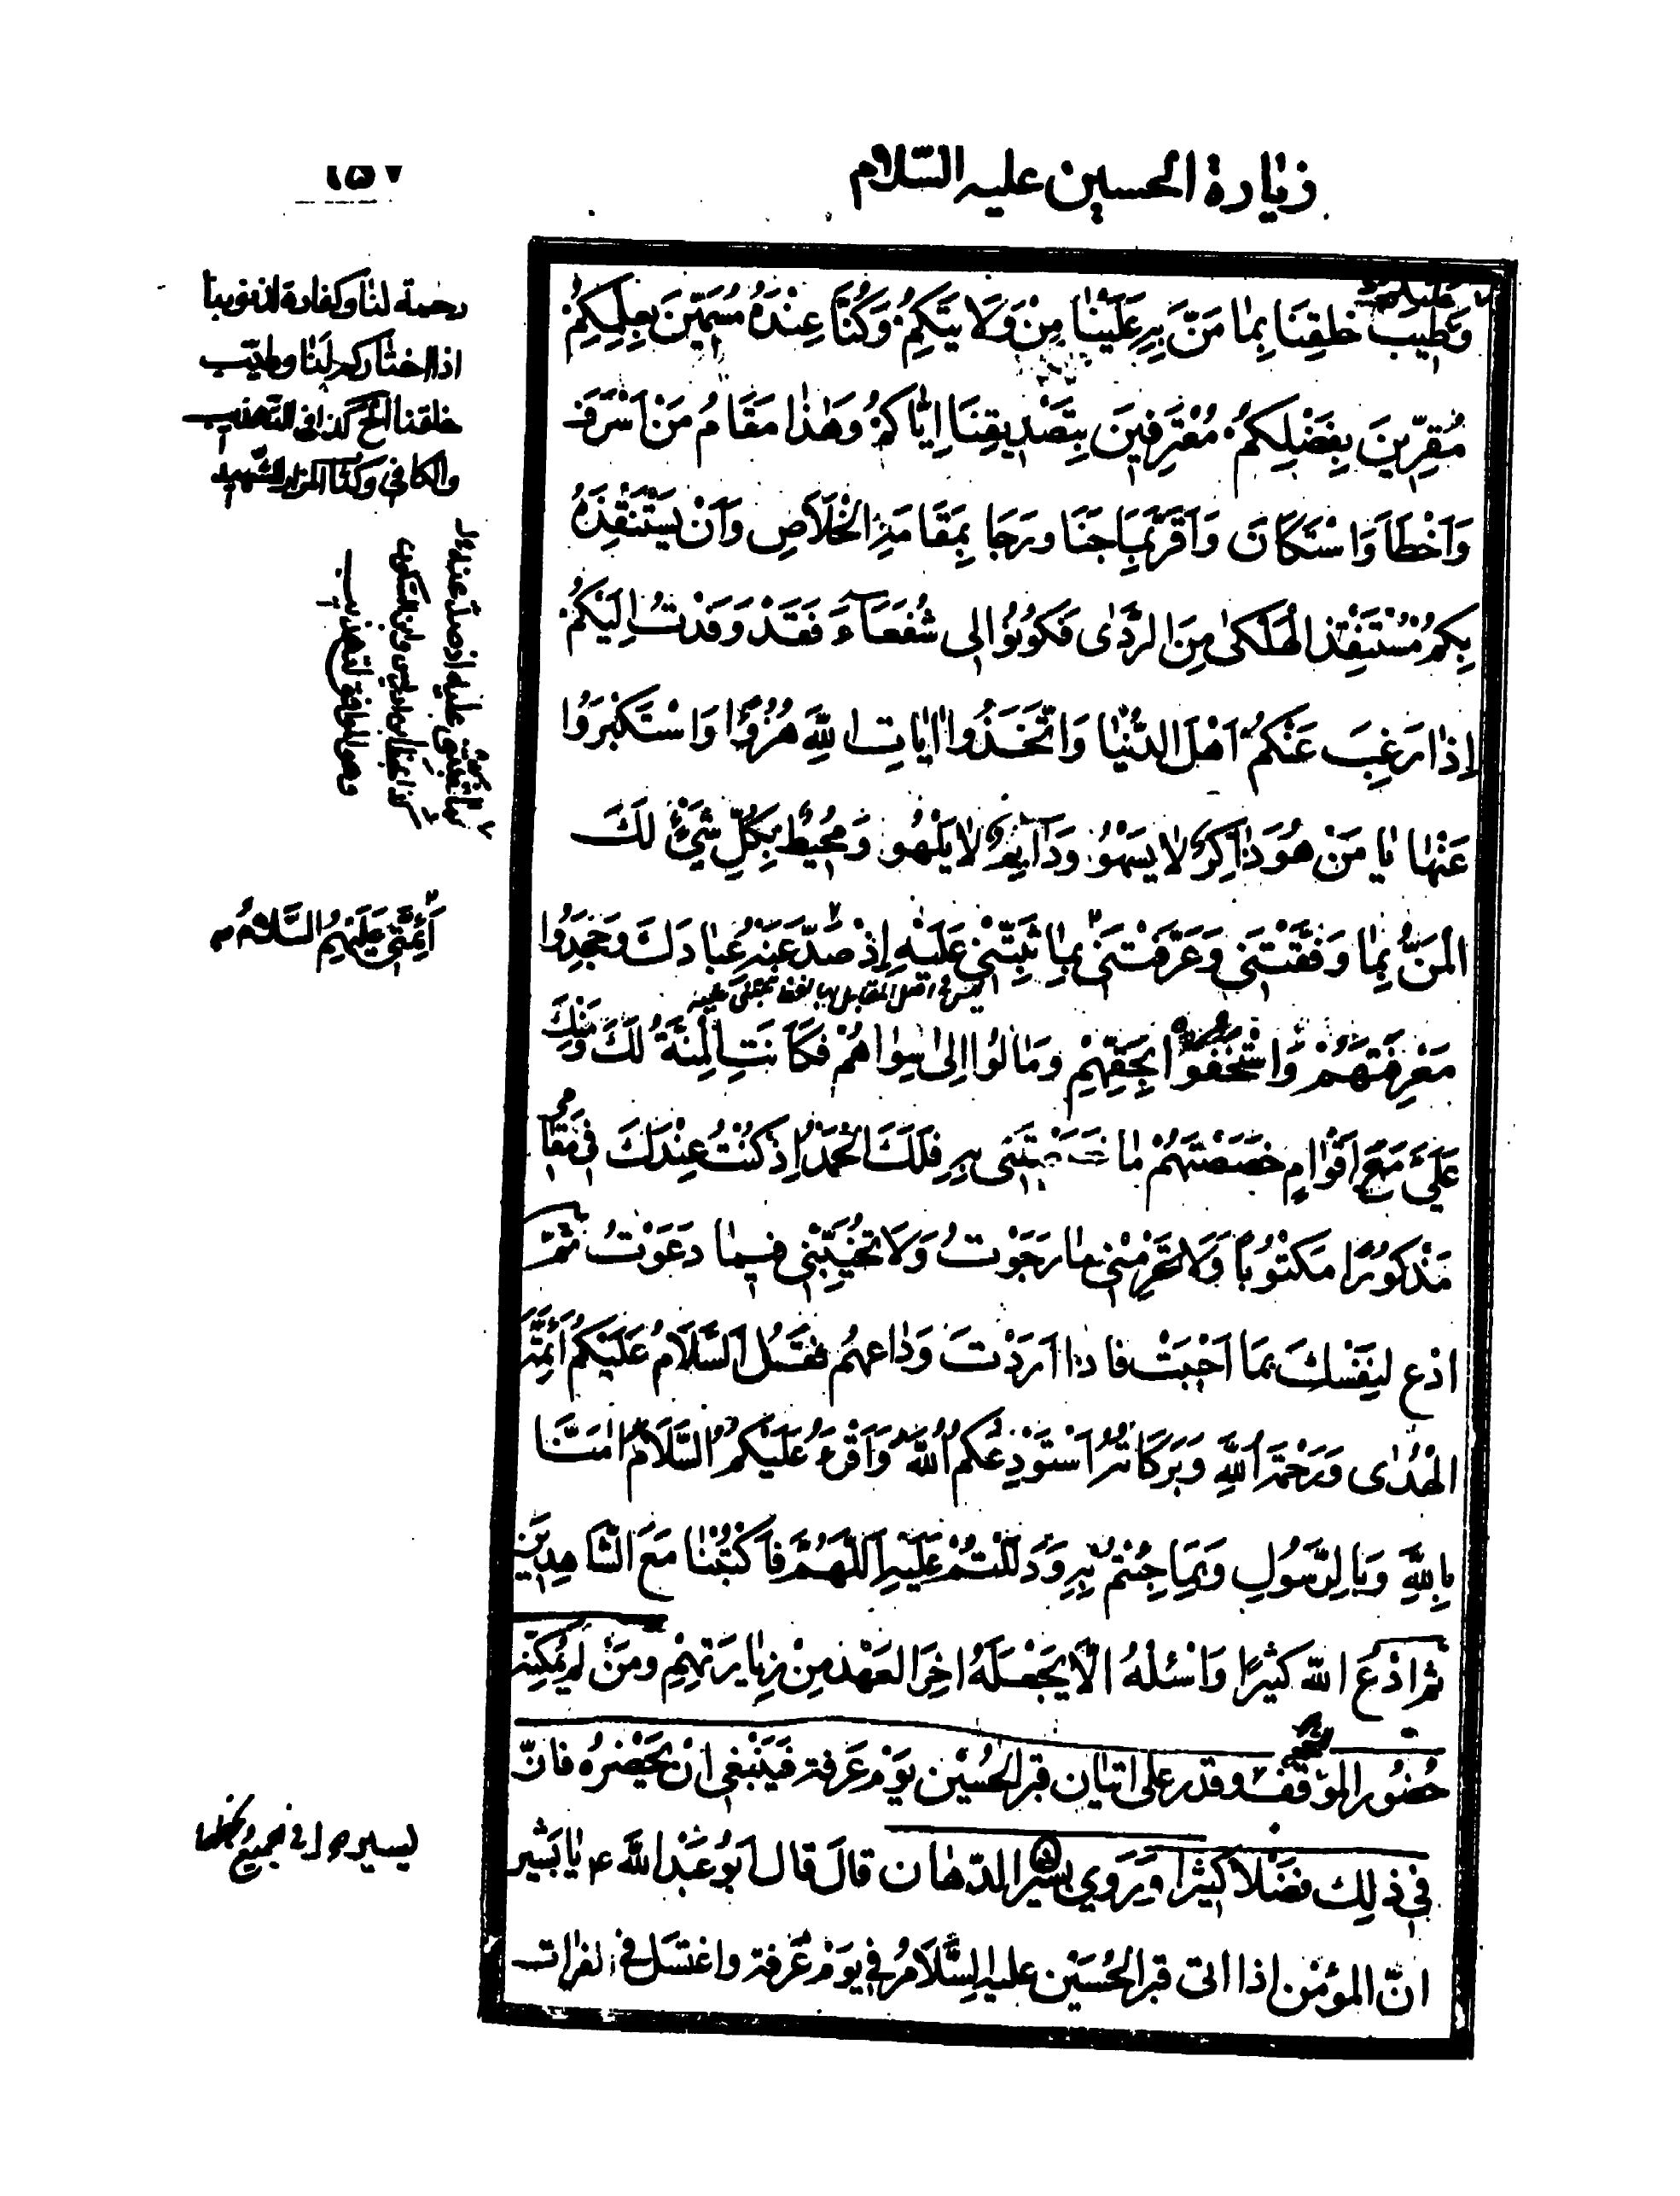 زيارة الحسين عليه السّلام
١٥٧
وَطيبَ خلقِنَا بِمٰا مَنَّ بِهِ عَلَيْنٰا مِنْ وَلَا يَتَكِمُ وَكُنَّا عِنْدَهُ مُسَمَّينَ بِعِلمِكِمُ
مُقِرّينَ بِفَضْلِكُمْ مُعْتَرِفينَ بِتَصْديقِنَا اِيّٰاكُمْ وَهٰذٰا مَقَامُ مَنْ اَسْرَفَ
وَاَخْطَاَ وَاسْتَكَانَ وَاَقَرَّ بِمَا جَنَا ورَجَا بِمَقَامِهِ الْخَلَاصِ وَاَنْ يَسْتَنْقِذَهُ
بِكُمْ مُسْتَنْقِذ الْهَلْكىٰ مِنَ الرَّدٰى فَكوُنوُا لى شُفَعَاءَ فَقَدْ وَفَدْتُ اِلَيْكُمْ
اِذٰا رَغِبَ عَنْكُمْ اَهْلَ الدُّنْيٰا وَاتَّخَذُوا اٰيٰاتِ اللهِ هُزُوًا وَاسْتَكْبَرَوُا
عَنْهٰا يٰا مَنْ هُوَ ذٰاكِرٌ لٰا يَسْهوُ وَدٰآئِمٌ لٰا يَلْهوُ وَمُحيطٌ بِكُلِّ شَيْءٍ لَكَ
الْمَنُّ بِمٰا وَفَّقْتَنى وَعَرَّفْتَنى بِمٰا ثَبَّتَّنى عَلَيْهِ اِذْ صَدَّ عَنْهُ عِبٰادَكَ وَجَحَدُوا
مَعْرِفَتَهُمْ وَاسْتَخَفّوُا بِحَقِّهِمْ وَمٰالُوا اِلىٰ سِوٰاهُمْ فَكَانَتِ الْمِنَّةُ لَكَ وَمِنْكَ
عَلَيَّ مَعَ اَقْوٰامٍ خَصَصْتَهُمْ بِمٰا خَصَصْتَنى بِهِ فَلَكَ الْحَمْدُ اِذْ كُنْتُ عِنْدَكَ فى مَقٰامى
مَذْكوُرًا مَكتْوُبًا وَلَا تَحْرِمْنى مٰا رَجَوْتُ وَلَا تُخَيِّبْنى فيمٰا دَعَوْتُ ثمّ
ادْع لنِفَسْكَ بمَا اَحْبَبَتْ فاذا اَرَدْتَ وَدٰاعهمُ فقَلُ اَلسَّلَامُ عَلَيْكُمْ اَئِمَّةَ
الْهُدٰى وَرَحْمَةُ اللهِ وَبَرَكَاتُهُ اَسْتَوْدِعُكُمُ اللهَ وَاَقْرَءُ عَلَيْكُمُ السَّلَامَ اٰمَنَّا
بِاللهِ وَبَالرَّسُولِ وَبِمَا جِئْتُمْ بِهِ وَدَلَلْتُمْ عَلَيْهِ اَللّٰهُمَّ فَاكْتُبْنٰا مَعَ الشَّاهِدينَ
ثم ادْعَ الله كثيرًا وَاسْئلهُ الّا يَجْعَلَهُ اخِرَ العَهْد مِنْ زِيٰارَتِهِمْ ومَنْ لم يُمكِنه
حُضُور الموَقفَ وقدر على اتيٰان قبر الحُسَيْن يَوْم عَرَفة فَيَنْبَغى انْ يَحْضرُه فانّ
فى ذلِك فضْلاً كثيرًا وَرَوي بشير الدّهان قالَ قال ابَوُ عَبْدالله ع يٰا بَشير
انّ المؤمْن اذا اتى قبر الحُسَيْن عليه السَّلَامُ فى يوَمْ عَرَفة واغتسَل فى الفرات
رحمة لنا وكفارة لذنوبنا
اذا اختاركم لنا وطيّب
خلقنا الخ كذا فى التّهذيب
والكافي وكذا المزار للشّهيد
اَئِمَّتى عَلَيْهِمُ السَّلَامُ